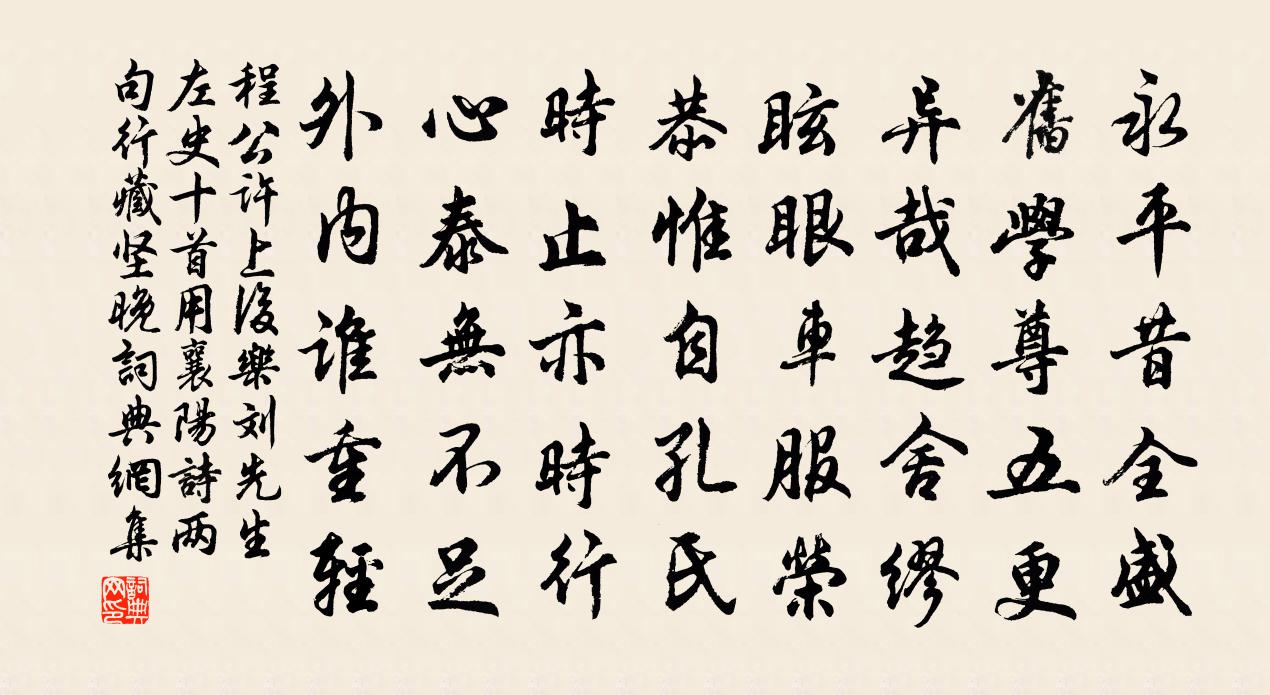 永平昔全盛
舊學尊五更
异哉趋舍缪
眩眼車服榮
恭惟自孔氏
時止亦時行
心泰無不足
外内谁重輕
程公许上後樂刘先生
左史十首用襄陽詩两
句行藏坚晚詞典網集
詞典網印